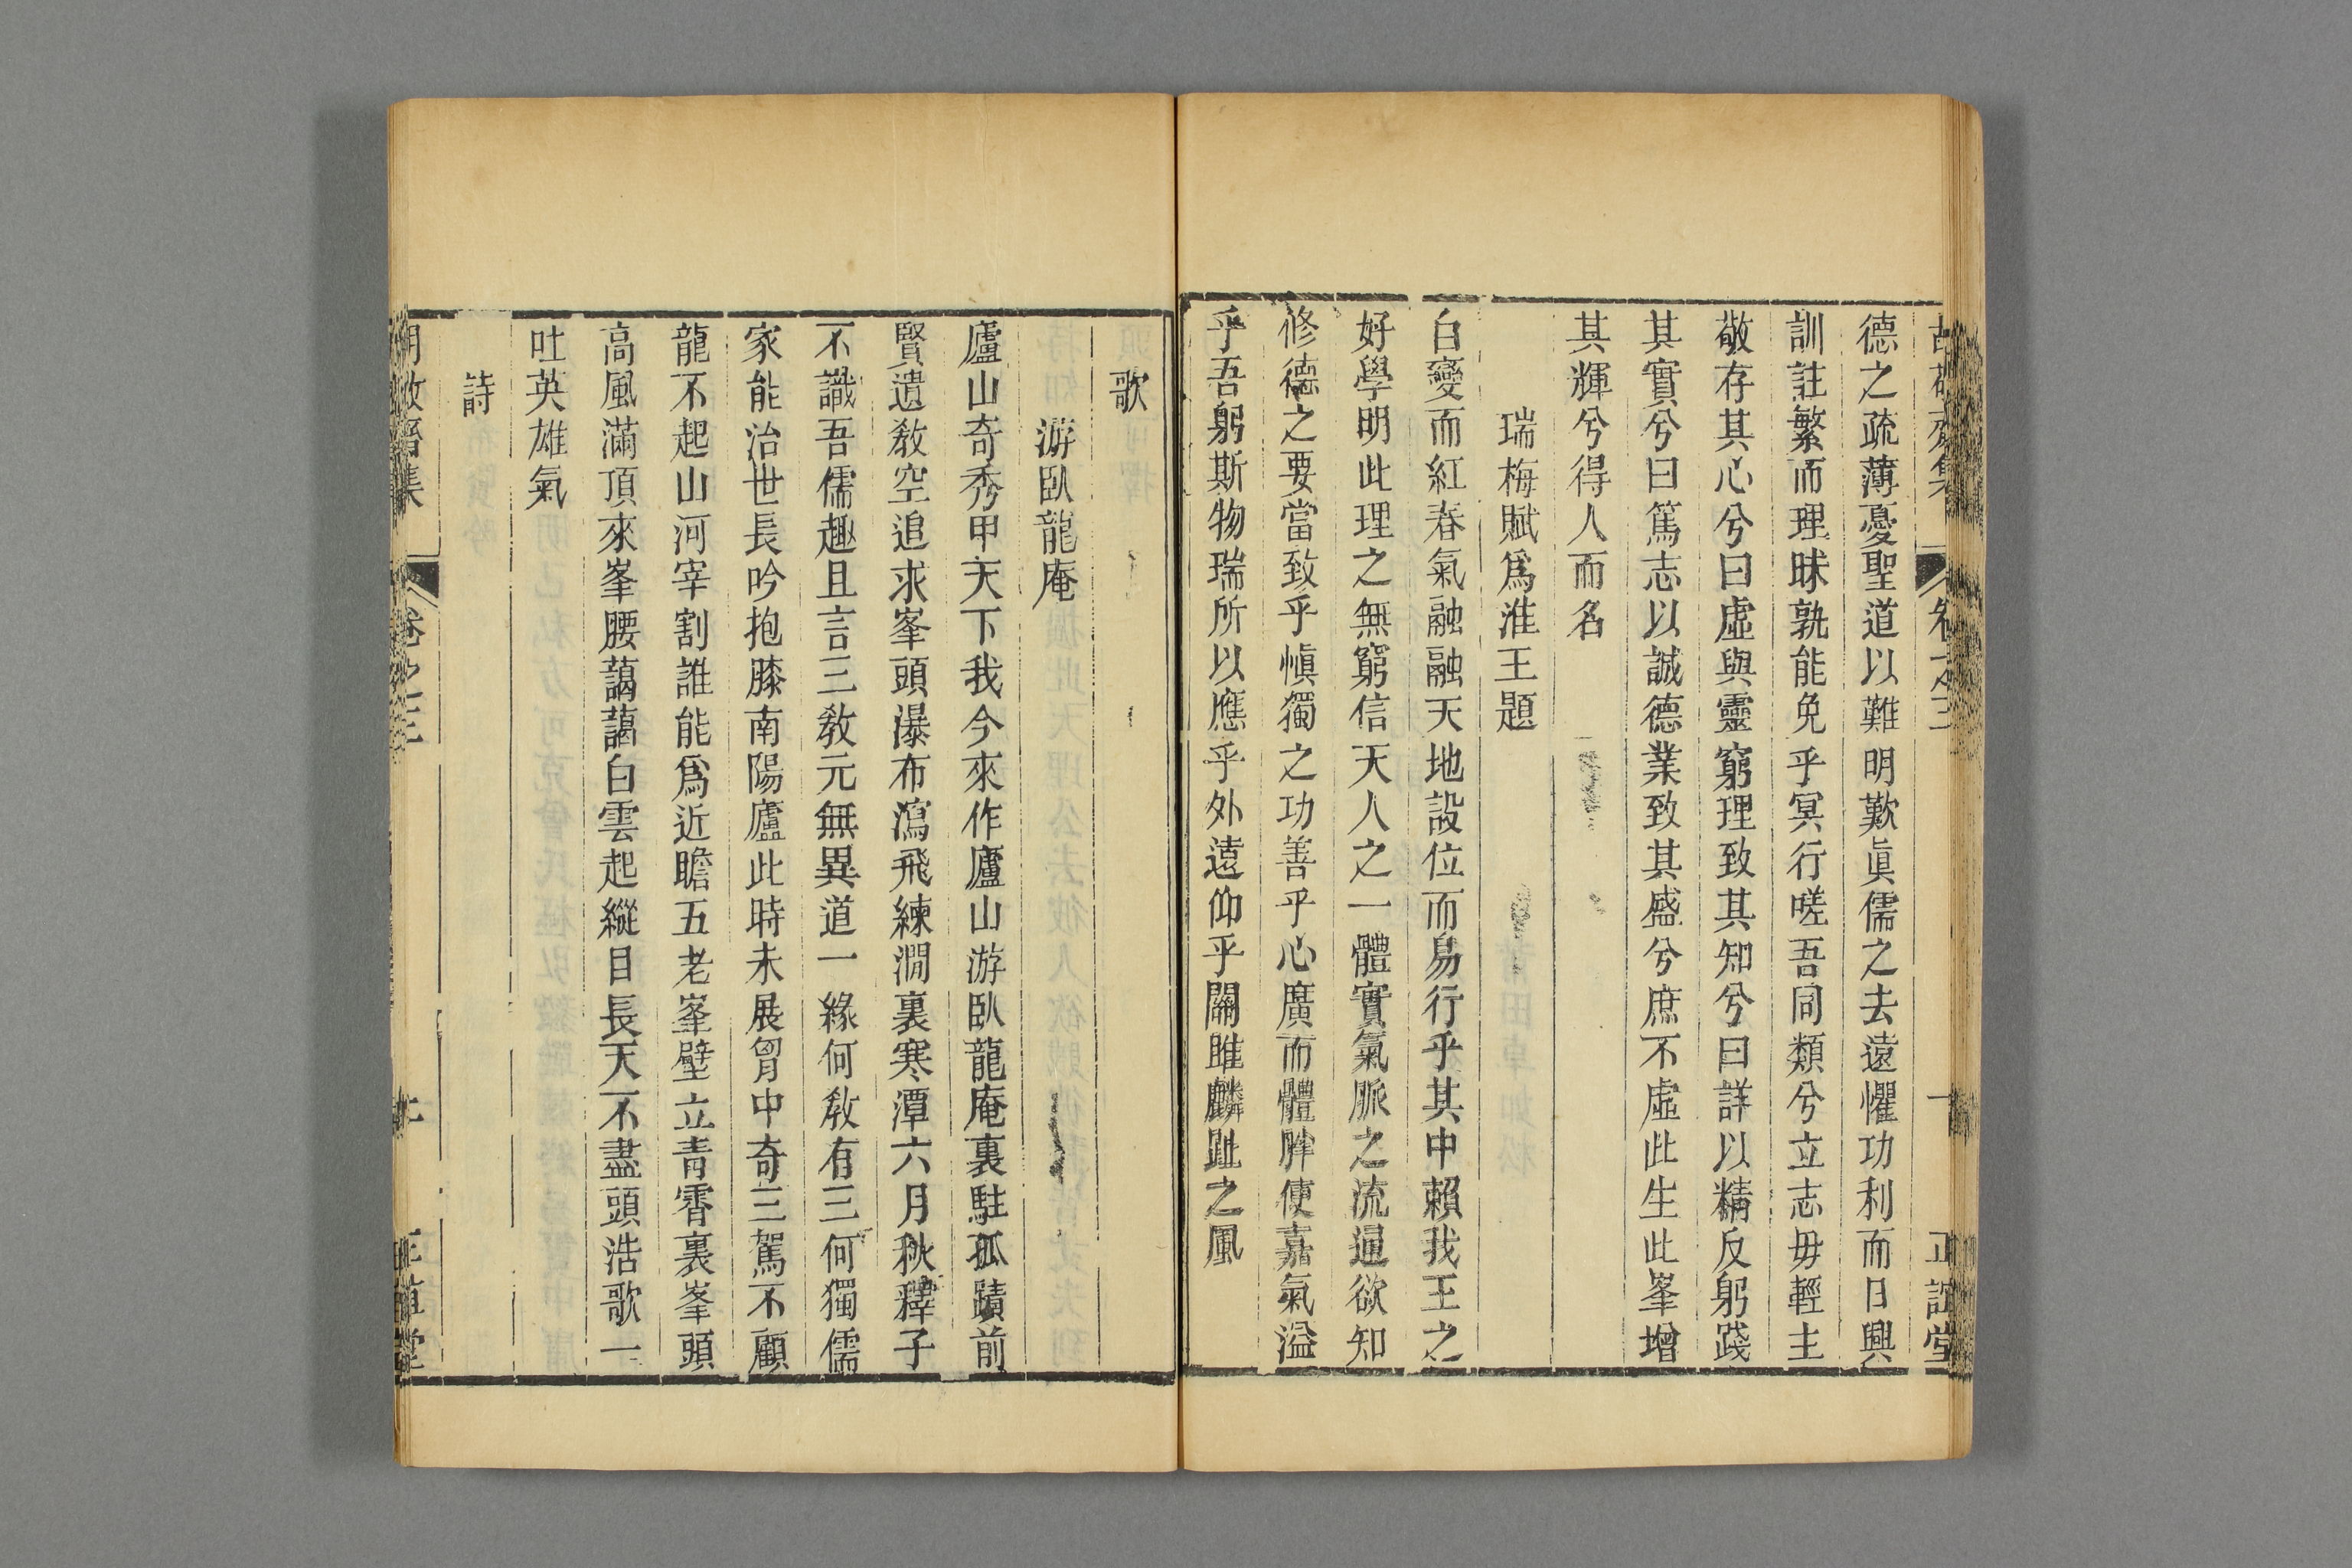 胡敬齋集 卷之三 十 正誼堂
德之疏薄憂聖道以難明歎眞儒之去遠懼功利而日興
訓註繁而理昧孰能免乎冥行嗟吾同類兮立志毋輕主
敬存其心兮曰虛與靈窮理致其知兮曰詳以精反躬踐
其實兮曰篤志以誠德業致其盛兮庶不虛此生此峯增
其輝兮得人而名
瑞梅賦爲淮王題
白變而紅春氣融融天地設位而易行乎其中賴我王之
好學明此理之無窮信天人之一體實氣脈之流通欲知
修德之要當致乎愼獨之功善乎心廣而體胖便嘉氣溢
乎吾躬斯物瑞所以應乎外遠仰乎關雎麟趾之風
歌
游臥龍庵
廬山奇秀甲天下我今來作廬山游臥龍庵裏駐孤蹟前
賢遺敎空追求峯頭瀑布瀉飛練澗裏寒潭六月秋釋子
不識吾儒趣且言三敎元無異道一緣何敎有三何獨儒
家能治世長吟抱膝南陽廬此時未展胷中奇三駕不顧
龍不起山河宰割誰能爲近瞻五老峯壁立青霄裏峯頭
高風滿頂來峯腰藹藹白雲起縱目長天不盡頭浩歌一
吐英雄氣
詩
胡敬齋集 卷之三 十 正誼堂